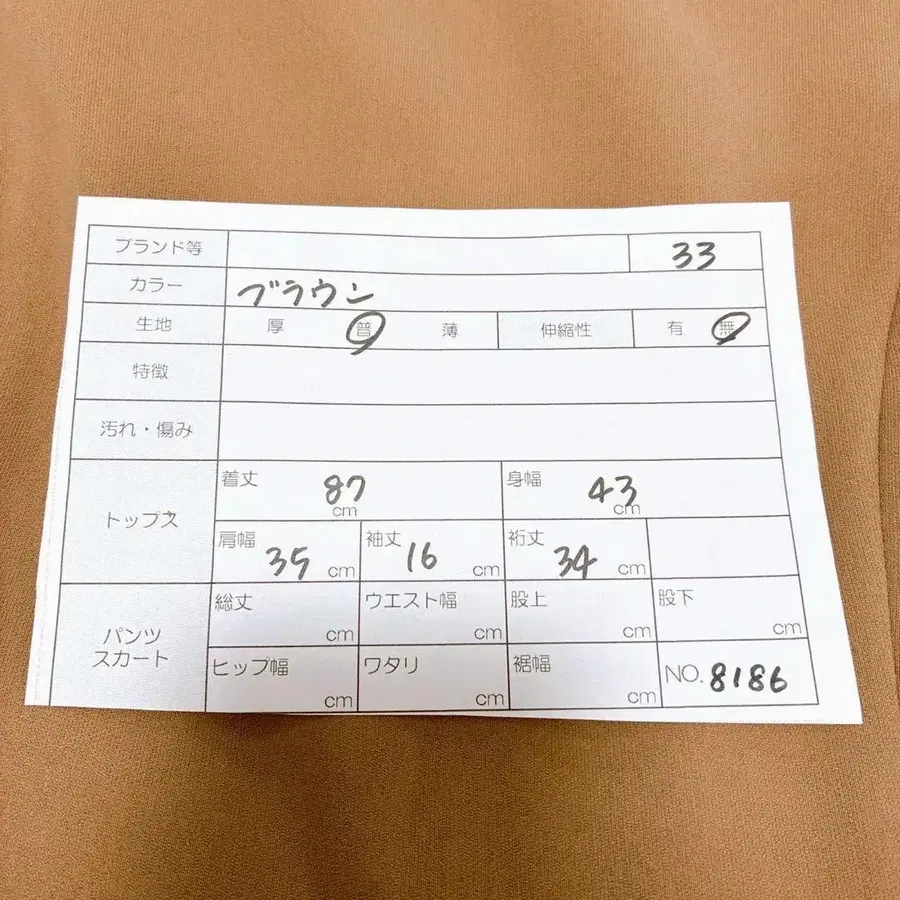 ブランド等 33
カラー ブラウン
生地 厚 普 薄 伸縮性 有 無
特徴
汚れ・傷み
トップス 着丈 87 cm 身幅 43 cm
肩幅 35 cm 袖丈 16 cm 裄丈 34 cm
パンツ
スカート
総丈 cm ウエスト幅 cm 股上 cm 股下 cm
ヒップ幅 cm ワタリ cm 裾幅 cm NO. 8186